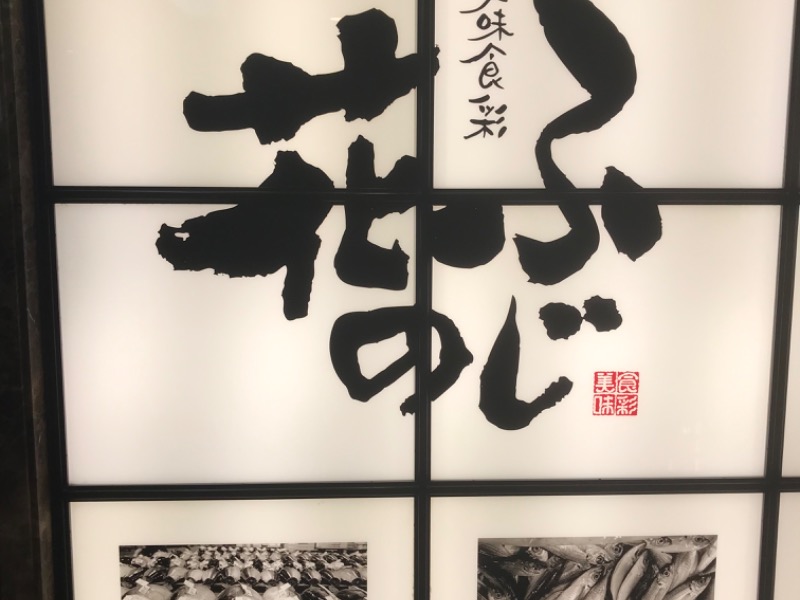 美味食彩
ふじの花
美味食彩